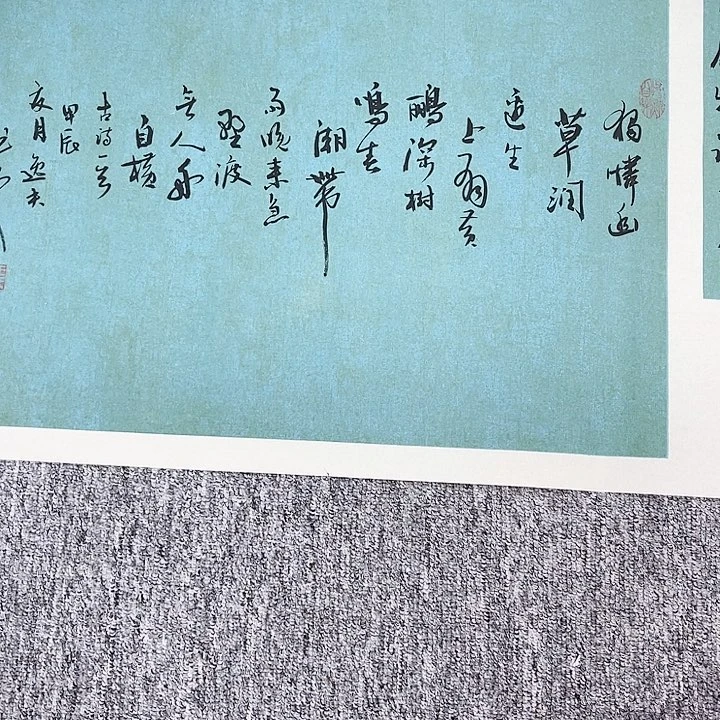 獨憐幽
草澗
邊生
上有黃
鸝深樹
鳴春
潮帶
雨晚來急
野渡
無人舟
自橫
古詩一首
甲辰
月逸夫